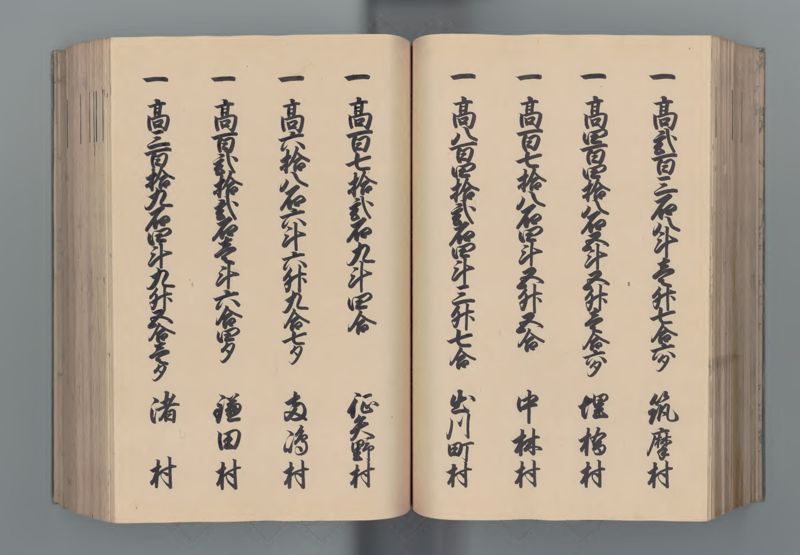 一 高弐百三石八斗壱升七合六夕 筑摩村
一 高四百四拾八石五斗五升壱合六夕 埋橋村
一 高百七拾八石四斗五升五合 中林村
一 高八百四拾弐石四斗三升七合 出川町村
一 高百七拾弐石九斗四合 征矢野村
一 高六拾八石六斗六升九合七夕 両嶋村
一 高百弐拾弐石壱斗六合四夕 鎌田村
一 高三百拾九石四斗九升五合壱夕 渚村